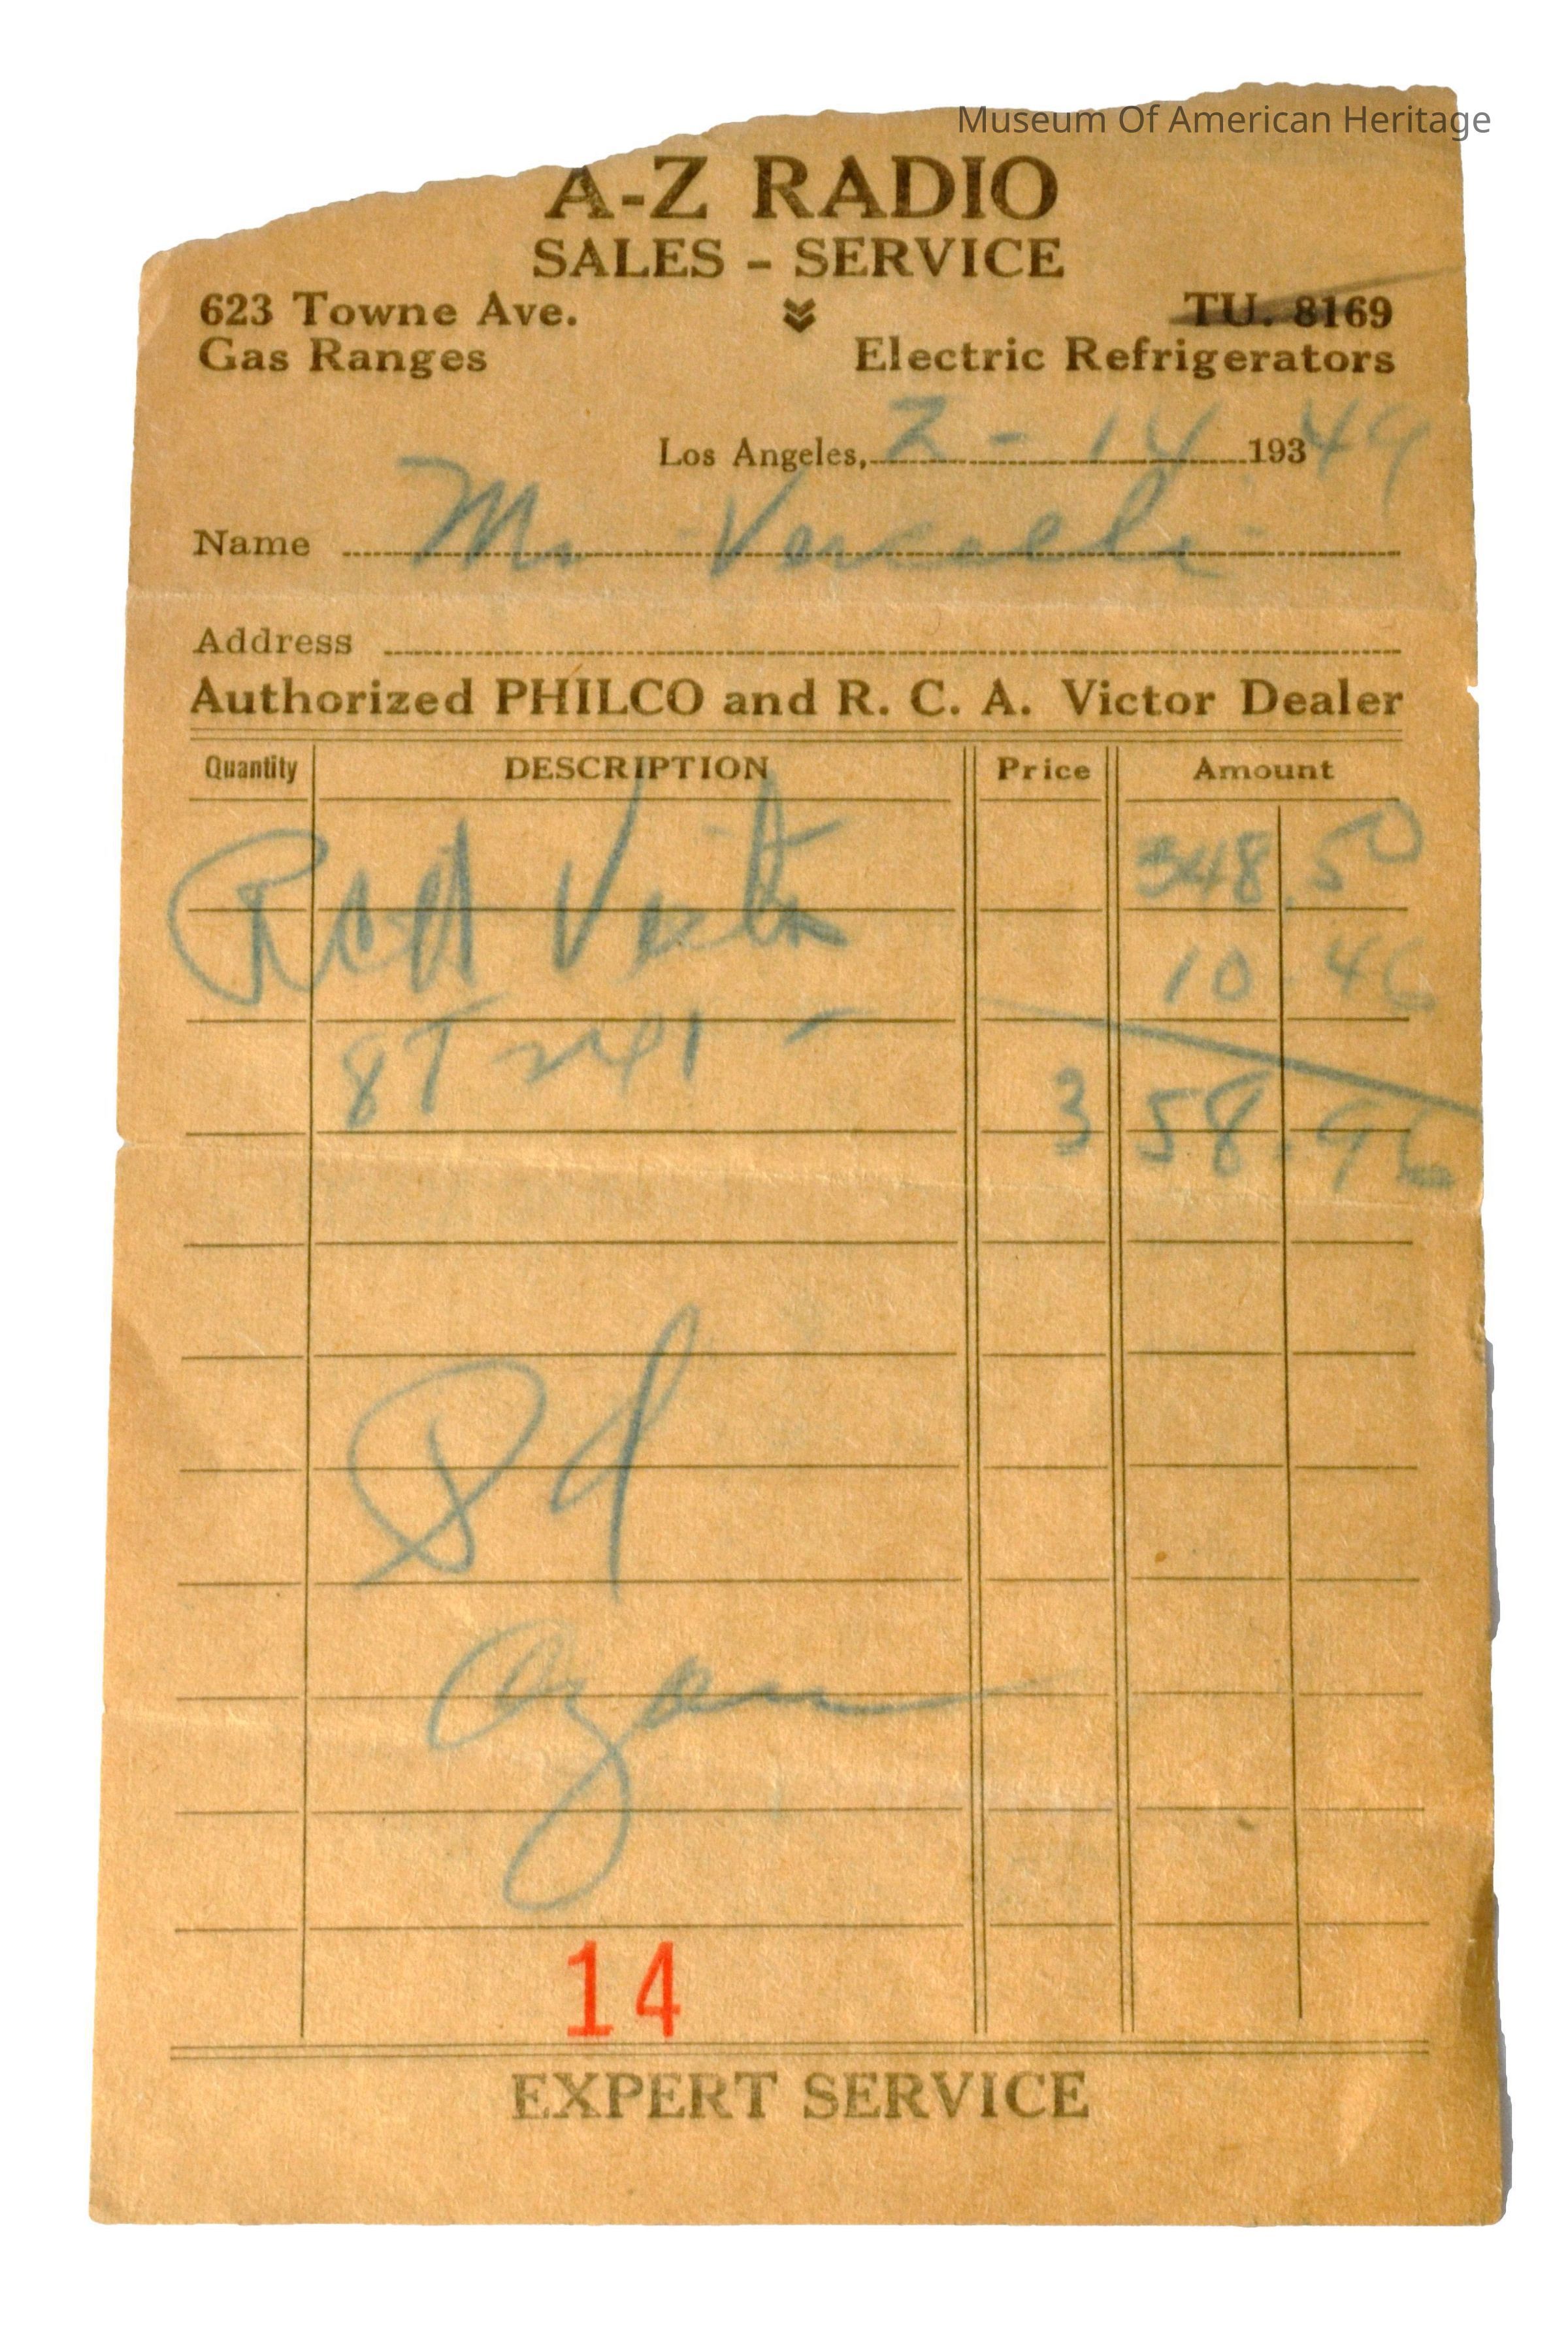 Museum Of American Heritage
A-Z RADIO
SALES - SERVICE
623 Towne Ave. TU. 8169
Gas Ranges Electric Refrigerators
Los Angeles, 2 - 14 193 49
Name Mr
Address
Authorized PHILCO and R. C. A. Victor Dealer
Quantity DESCRIPTION Price Amount
RCA Victor 348.50
10.46
8T
358.96
Pd
14
EXPERT SERVICE